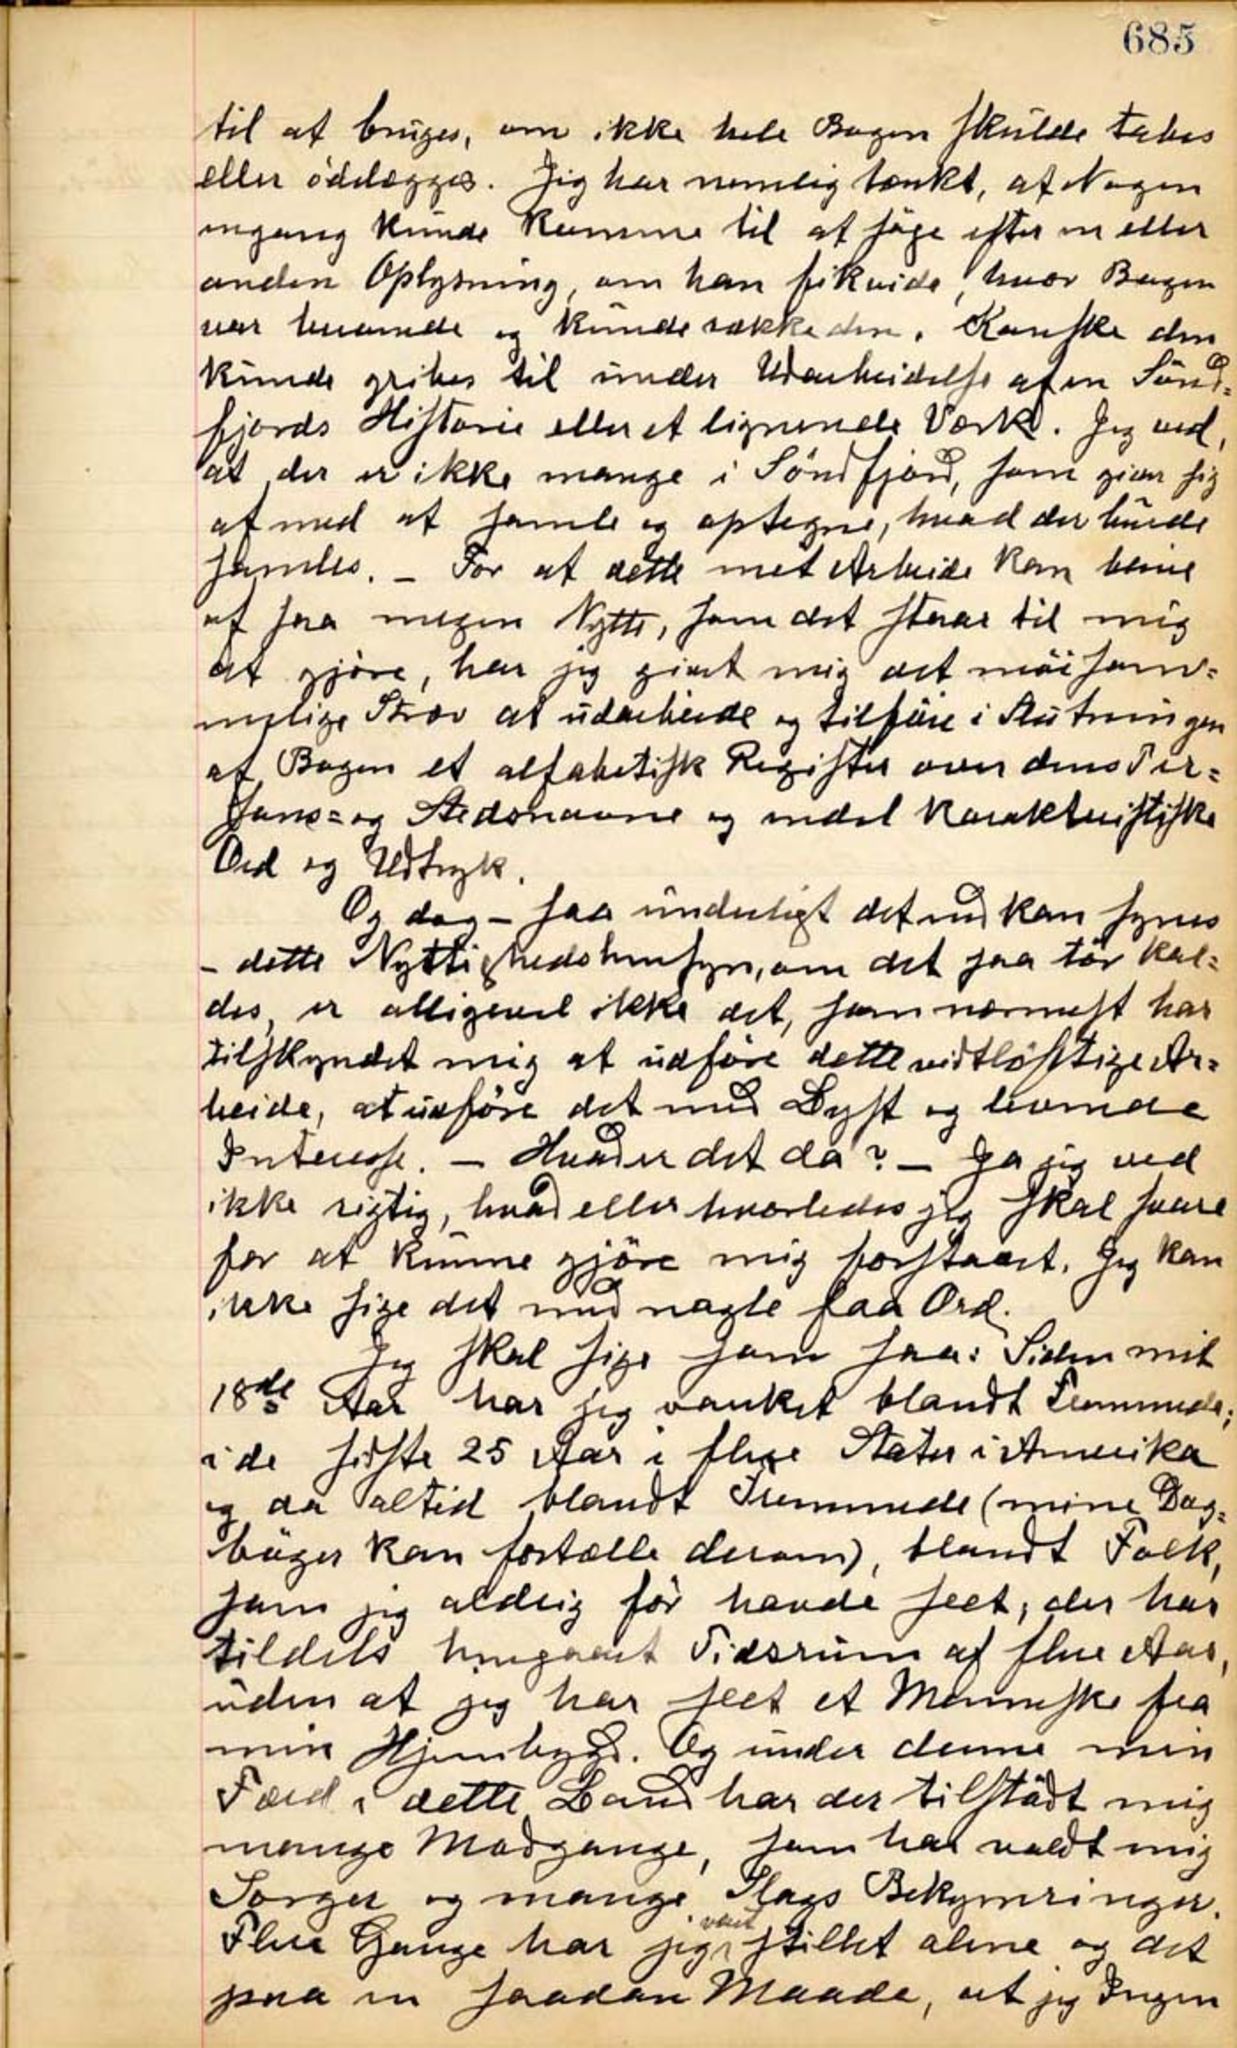 685
til at bruges, om ikke hele Bogen skulde tabes
eller ödelægges. Jeg har nemlig tænkt, at Nogen
engang kunde komme til at söge efter en eller
anden Oplysning, om han fik vide, hvor Bogen
var henvende og kunde række den. Kanske den
kunde gribes til under Udarbeidelse af en Sönd=
fjords Historie eller et lignende Værk. Jeg ved,
at der er ikke mange i Söndfjord, som giver sig
af med at samle og optegne, hvad der burde
samles. – For at dette mit Arbeide kan blive
af saa megen Nytte, som det staar til mig
at gjöre, har jeg givet mig det möisom=
melige Stræv at udarbeide og tilföie i Slutningen
af Bogen et alfabetisk Register over dens Per=
sons= og Stedsnavne og endel karakteristiske
Ord og Udtryk.
Og dog – saa underligt det end kan synes
– dette Nyttighedshensyn, om det saa tör kal=
des, er alligevel ikke det, som nærmest har
tilskyndet mig at udföre dette vidtlöftige Ar=
beide, at udföre det med Lyst og levende
Interesse. – Hvad er det da? – Ja jeg ved
ikke rigtig, hvad eller hvorledes jeg skal svare
for at kunne gjöre mig forstaaet. Jeg kan
ikke sige det med nogle faa Ord.
Jeg skal sige som saa: Siden mit
18de Aar har jeg vanket blandt Fremmede;
i de sidste 25 Aar i flere Stater i Amerika
og da altid blandt Fremmede (mine Dag=
böger kan fortælle derom), blandt Folk,
som jeg aldrig för havde seet; der har
tildels hengaaet Tidsrum af flere Aar,
uden at jeg har seet et Menneske fra
min Hjembygd. Og under denne min
Færd i dette Land har der tilstödt mig
mange Modgange, som har voldt mig
Sorger og mange Slags Bekymringer.
Flere Gange har jeg været stillet alene og det
paa en saadan Maade, at jeg Ingen